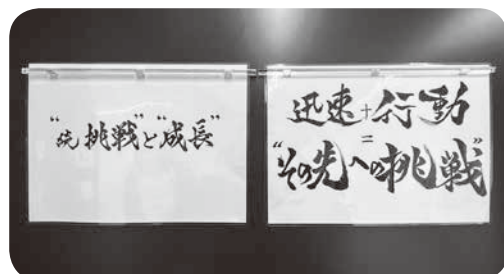 “続挑戦”と“成長”
迅速+行動
=
“その先への挑戦”